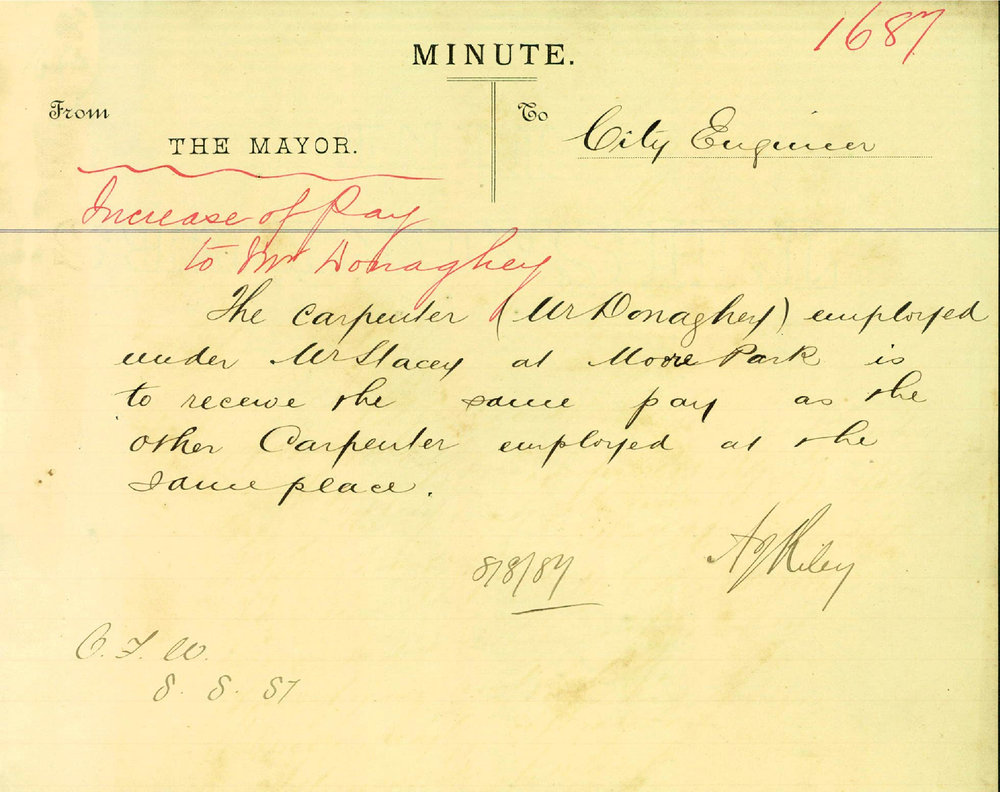 1687
MINUTE.
From
To
THE MAYOR.
City Engineer
Increase of Pay
to Mr Donaghey
The Carpenter (Mr Donaghey) employed
under Mr Stacey at Moore Park is
to receive the same pay as the
other Carpenter employed at the
same place.
AJRiley
8/8/87
O. F. W.
8. 8. 87